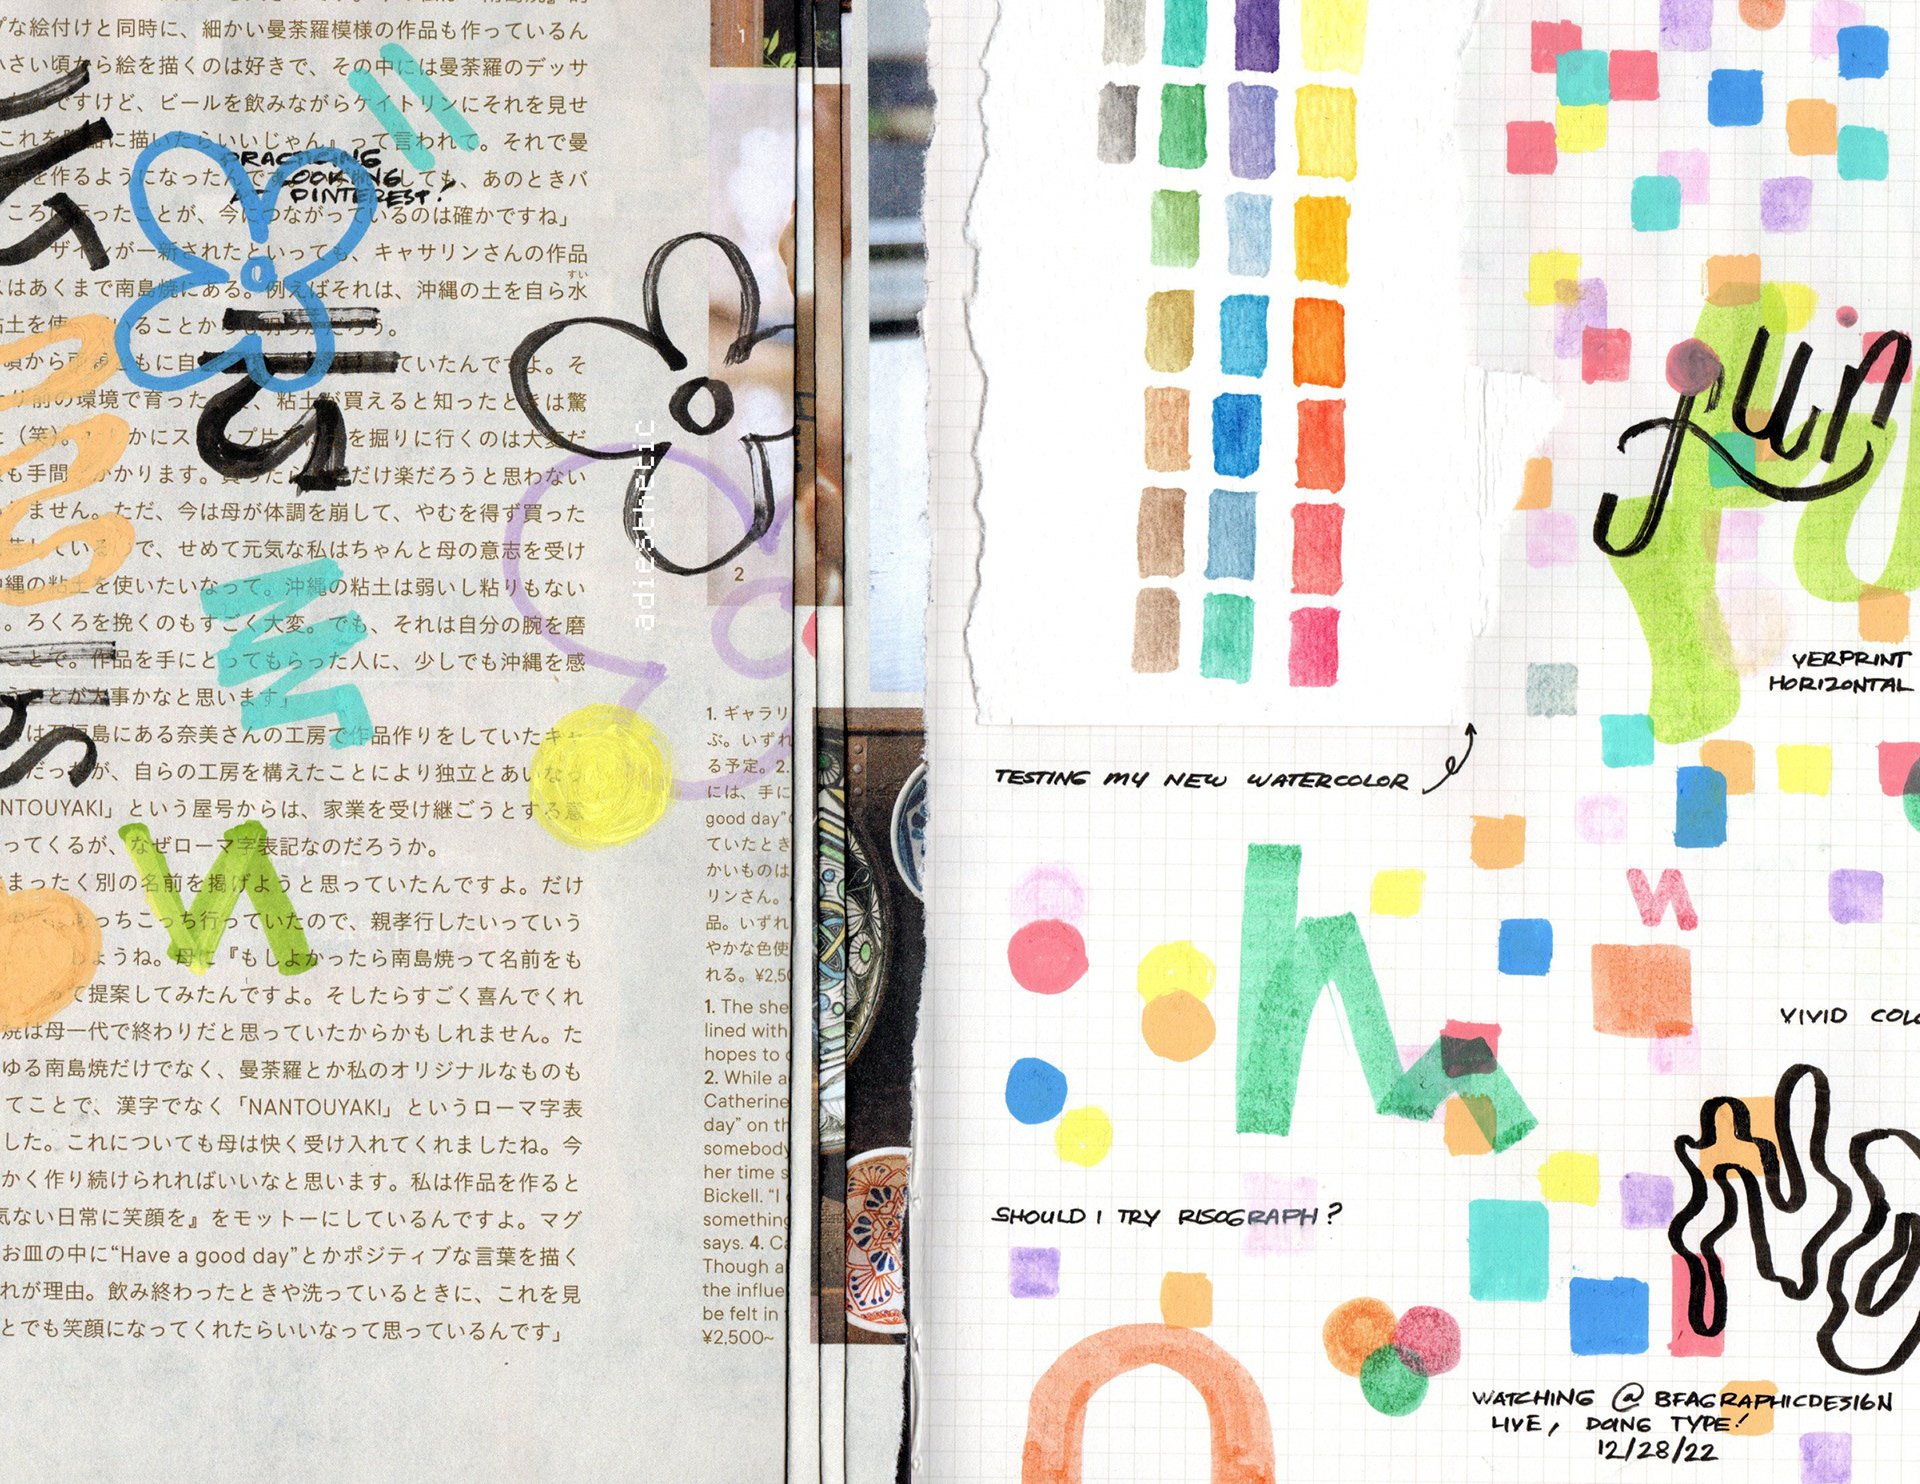 PRACTICING
LOOKING
AT PINTEREST!
な絵付けと同時に、細かい曼荼羅模様の作品も作っているん
さい頃から絵を描くのは好きで、その中には曼荼羅のデッサ
ですけど、ビールを飲みながらケイトリンにそれを見せ
これを
に描いたらいいじゃん』って言われて。それで曼
を作るようになったんです
しても、あのときバ
行ったことが、今につながっているのは確かですね」
が一新されたといっても、キャサリンさんの作品
はあくまで南島焼にある。例えばそれは、沖縄の土を自ら水
すい
粘土を使
いることから
頃から
ともに自
ていたんですよ。そ
前の環境で育った
、粘土が買えると知ったときは驚
(笑)。
かにス
プ片
を掘りに行くのは大変だ
も手間
かかります。買ったら
だけ楽だろうと思わない
ません。ただ、今は母が体調を崩して、やむを得ず買った
している
で、せめて元気な私はちゃんと母の意志を受け
沖縄の粘土を使いたいなって。沖縄の粘土は弱いし粘りもない
。ろくろを挽くのもすごく大変。でも、それは自分の腕を磨
ことで。作品を手にとってもらった人に、少しでも沖縄を感
ことが大事かなと思います」
は石垣島にある奈美さんの工房で作品作りをしていたキャ
だったが、自らの工房を構えたことにより独立とあいなっ
NTOUYAKI」という屋号からは、家業を受け継ごうとする意
ってくるが、なぜローマ字表記なのだろうか。
まったく別の名前を掲げようと思っていたんですよ。だけ
あっちこっち行っていたので、親孝行したいっていう
しょうね。母に『もしよかったら南島焼って名前をも
て提案してみたんですよ。そしたらすごく喜んでくれ
焼は母一代で終わりだと思っていたからかもしれません。た
ゆる南島焼だけでなく、曼荼羅とか私のオリジナルなものも
てことで、漢字でなく「NANTOUYAKI」というローマ字表
した。これについても母は快く受け入れてくれましたね。今
かく作り続けられればいいなと思います。私は作品を作ると
気ない日常に笑顔を』をモットーにしているんですよ。マグ
お皿の中に“Have a good day”とかポジティブな言葉を描く
れが理由。飲み終わったときや洗っているときに、これを見
とでも笑顔になってくれたらいいなって思っているんです」
adiesthetic
1
2
1. ギャラリ
ぶ。いずれ
る予定。2.
には、手に
good day”
ていたとき
かいものは
リンさん。
品。いずれ
やかな色使
れる。¥2,50
1. The she
lined with
hopes to
2. While a
Catherine
day” on th
somebody
her time s
Bickell. “I
something
says. 4. Ca
Though a
the influe
be felt in
¥2,500~
TESTING MY NEW WATERCOLOR
SHOULD I TRY RISOGRAPH?
Fun
VERPRINT
HORIZONTAL
VIVID COLO
WATCHING @ BFAGRAPHICDESIGN
LIVE, DOING TYPE!
12/28/22